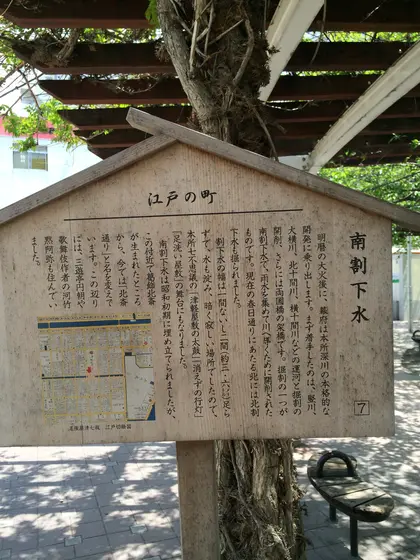 江戸の町
南割下水
7
明暦の大火後に、幕府は本所深川の本格的な
開発に乗り出します。まず着手したのは、竪川、
大横川、北十間川、横十間川などの運河と掘割の
開削、さらには両国橋の架橋です。掘割の一つが
南割下水で、雨水を集めて川へ導くために開削された
ものです。現在の春日通りにあたる北には北割
下水も掘られました。
割下水の幅は一間ないし二間(約三・六㍍)足ら
ずで、水も淀み、暗く寂しい場所でしたので、
本所七不思議の「津軽屋敷の太鼓」「消えずの行灯」
「足洗い屋敷」の舞台にもなりました。
南割下水は昭和初期に埋め立てられましたが、
この付近で葛飾北斎
が生まれたところ
から、今では「北斎
通り」と名を変えて
います。この辺り
には、三遊亭円朝や
歌舞伎作者の河竹
黙阿弥も住んでい
ました。
江戸切絵図